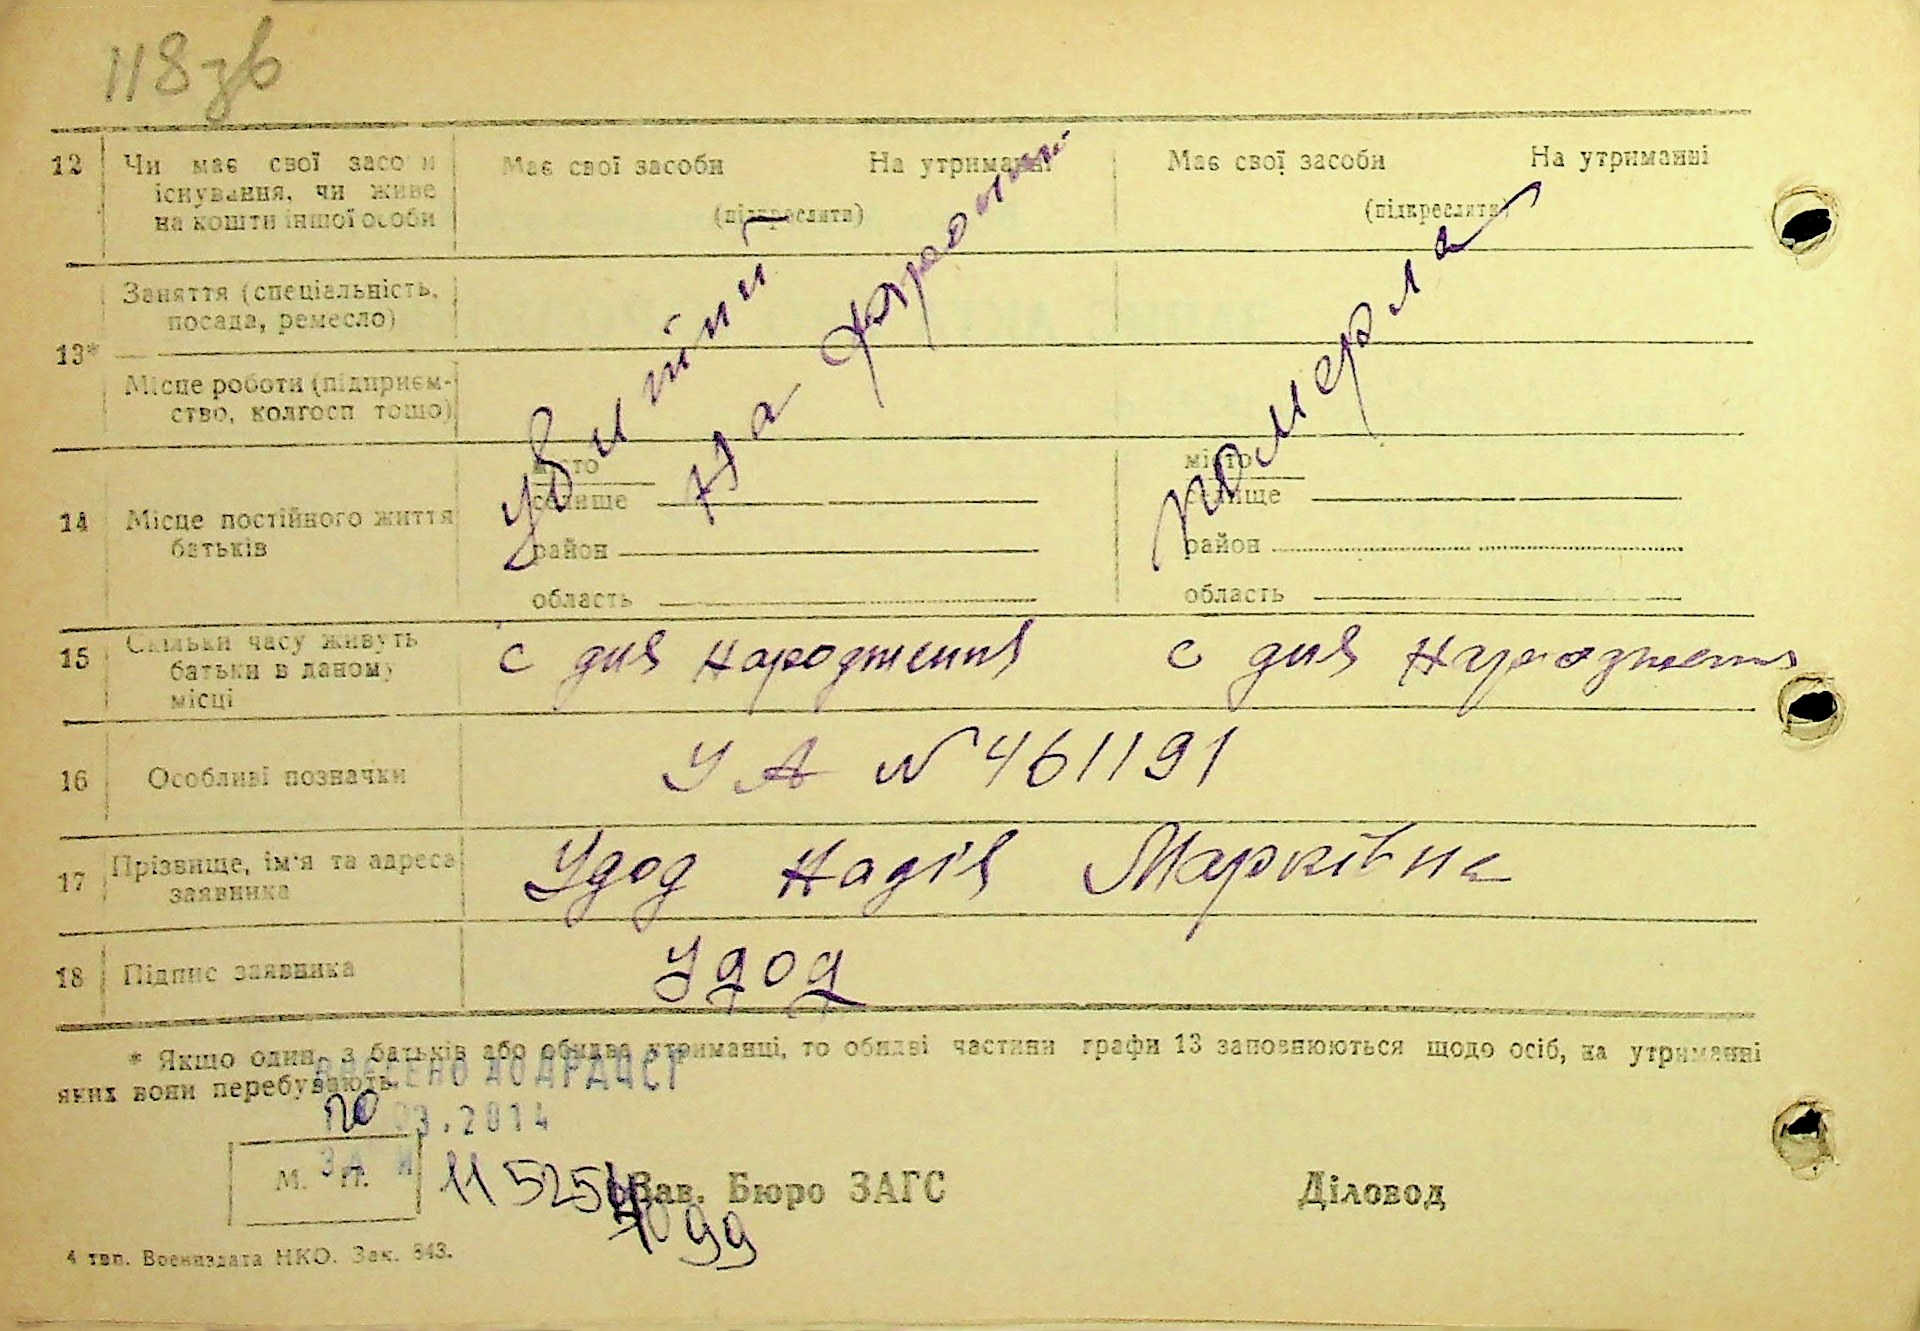 118зв
12 Чи має свої засоби Має свої засоби На утриманні Має свої засоби На утриманні
існування, чи живе
на кошти іншої особи (підкреслити) (підкреслити)
Заняття (спеціальність,
посада, ремесло)
13*
Місце роботи (підприєм-
ство, колгосп тощо)
убитий
на фронті
померла
місто місто
селище селище
14 Місце постійного життя
батьків район район
область область
15 Скільки часу живуть
батьки в даному
місці
с дня народження с дня народження
16 Особливі позначки УА № 461191
17 Прізвище, ім'я та адреса
заявника
Удод Надія Марківна
18 Підпис заявника Удод
* Якщо один з батьків або обидва утриманці, то обидві частини графи 13 заповнюються щодо осіб, на утриманні
яких вони перебувають.
ВНЕСЕНО ДО ДРАЦСГ
20 03.2014
М. П. ЗА №
115254 Зав. Бюро ЗАГС Діловод
4099
4 тип. Воениздата НКО. Зак. 843.